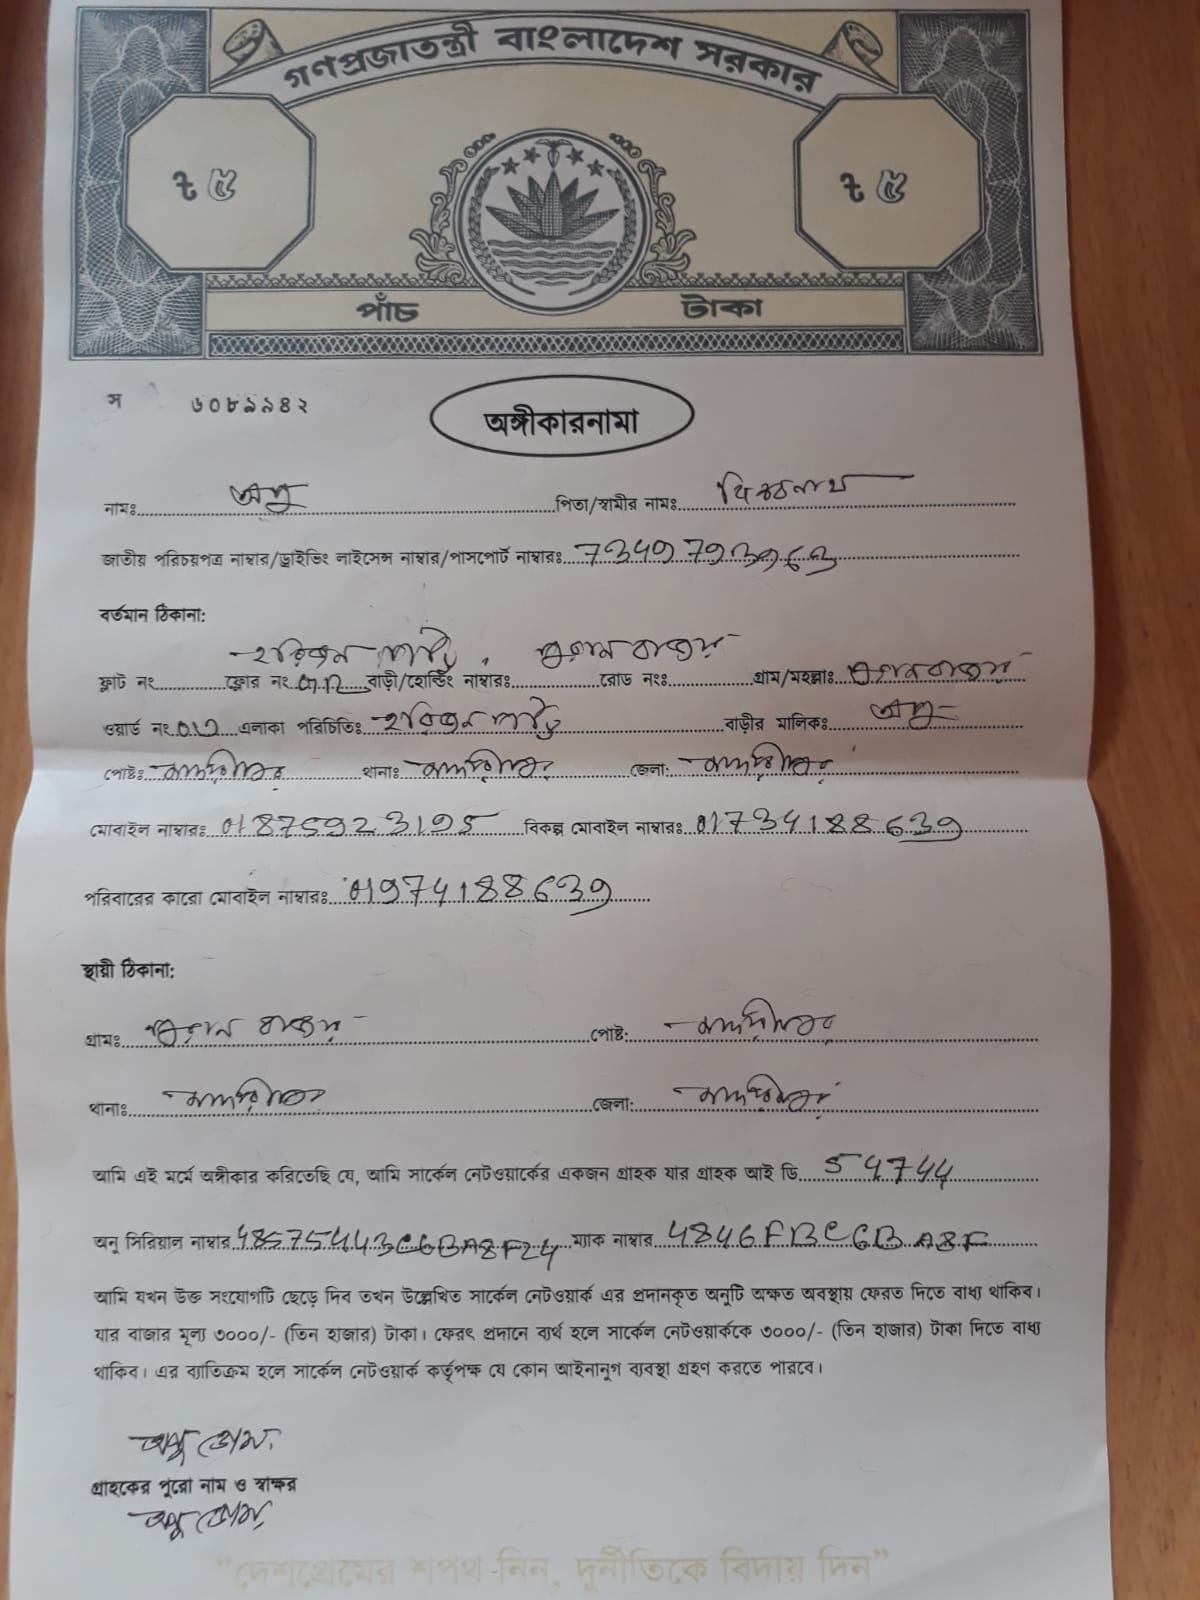 গণপ্রজাতন্ত্রী বাংলাদেশ সরকার
৳ ৫ ৳ ৫
পাঁচ টাকা
স ৬০৮৯৯৪২
অঙ্গীকারনামা
নামঃ অপু পিতা/স্বামীর নামঃ
জাতীয় পরিচয়পত্র নাম্বার/ড্রাইভিং লাইসেন্স নাম্বার/পাসপোর্ট নাম্বারঃ 7349793963
বর্তমান ঠিকানা:
হরিজন পল্লী, পুরান বাজার
ফ্লাট নং ফ্লোর নং বাড়ী/হোল্ডিং নাম্বারঃ রোড নংঃ গ্রাম/মহল্লাঃ পুরানবাজার
ওয়ার্ড নং এলাকা পরিচিতিঃ হরিজন পল্লী বাড়ীর মালিকঃ অপু
পোষ্টঃ মাদারীপুর থানাঃ মাদারীপুর জেলা: মাদারীপুর
মোবাইল নাম্বারঃ 01875923195 বিকল্প মোবাইল নাম্বারঃ 01734188639
পরিবারের কারো মোবাইল নাম্বারঃ 01974188639
স্থায়ী ঠিকানা:
গ্রামঃ পুরান বাজার পোষ্ট: মাদারীপুর
থানাঃ মাদারীপুর জেলা: মাদারীপুর
আমি এই মর্মে অঙ্গীকার করিতেছি যে, আমি সার্কেল নেটওয়ার্কের একজন গ্রাহক যার গ্রাহক আই ডি 54744
অনু সিরিয়াল নাম্বার 48575443C6BA8F24 ম্যাক নাম্বার 4846FBC6BA8F
আমি যখন উক্ত সংযোগটি ছেড়ে দিব তখন উল্লেখিত সার্কেল নেটওয়ার্ক এর প্রদানকৃত অনুটি অক্ষত অবস্থায় ফেরত দিতে বাধ্য থাকিব।
যার বাজার মূল্য ৩০০০/- (তিন হাজার) টাকা। ফেরৎ প্রদানে ব্যর্থ হলে সার্কেল নেটওয়ার্ককে ৩০০০/- (তিন হাজার) টাকা দিতে বাধ্য
থাকিব। এর ব্যাতিক্রম হলে সার্কেল নেটওয়ার্ক কর্তৃপক্ষ যে কোন আইনানুগ ব্যবস্থা গ্রহণ করতে পারবে।
অপু
গ্রাহকের পুরো নাম ও স্বাক্ষর
অপু
"দেশপ্রেমের শপথ নিন, দুর্নীতিকে বিদায় দিন"